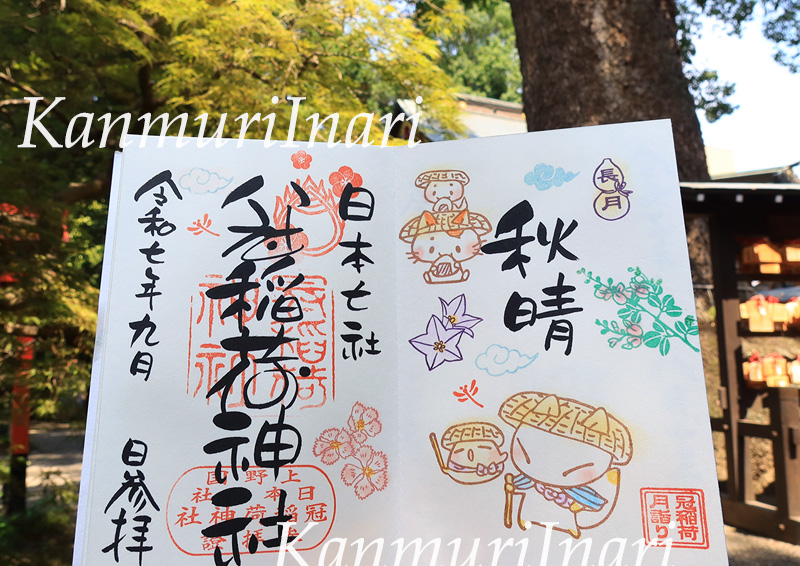 KanmuriInari
長月
秋晴
冠稲荷
月詣り
日本七社
冠稲荷神社
令和七年九月
日参拝
上野国
日本七社
冠稲荷神社
KanmuriInari